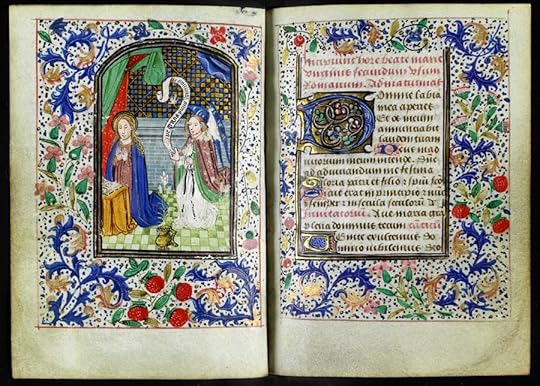 Incipiunt hore beate marie
virginis secundum usum
Romanum. Ad matutinas
Domine labia
mea aperies
Et os meum
annuntiabit
laudem tuam
Deus in ad
iutorium meum intende. Dne
ad adiuuandum me festina
Gloria patri et filio: et spui sco
Sicut erat in principio et nunc
et semper et in secula seculorum
Inuitatorium. Aue maria gra
plena dominus tecum.
Venite exultemus do
mino iubilemus deo